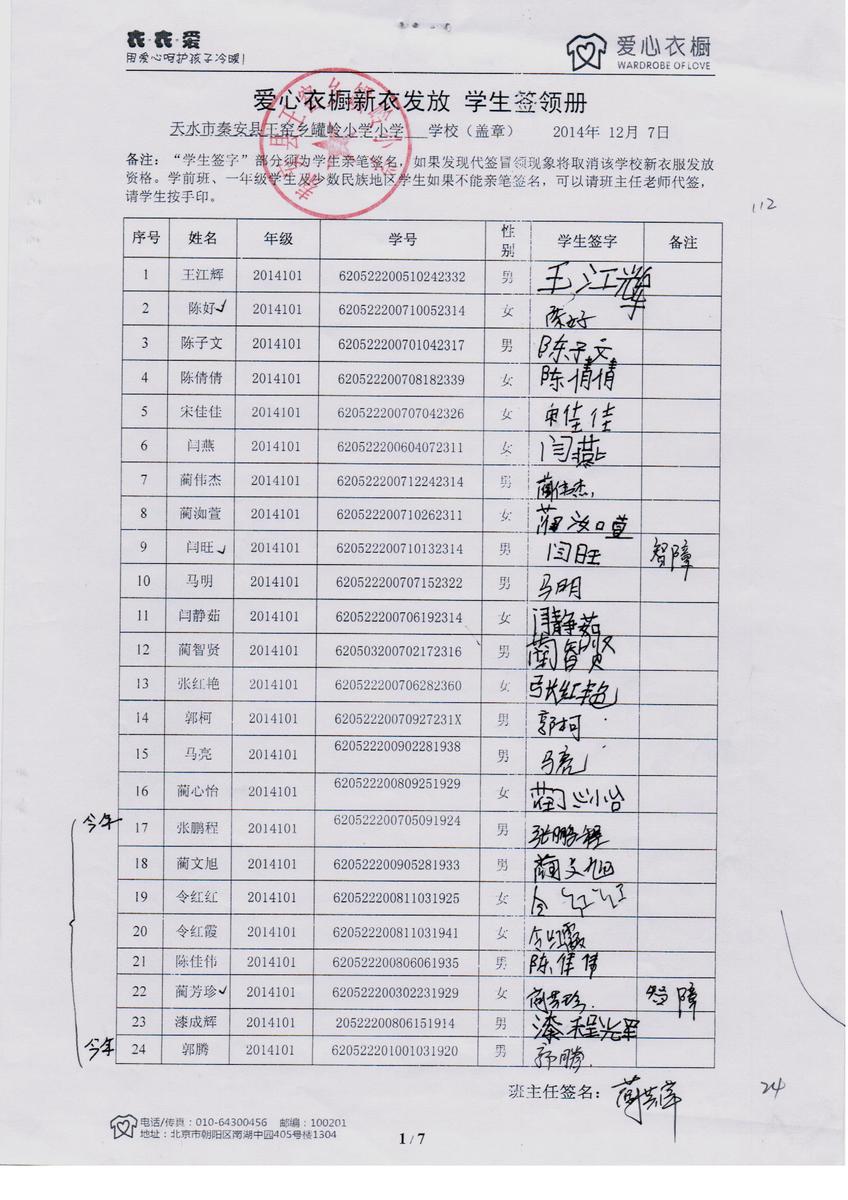 衣·衣·爱
用爱心呵护孩子冷暖！
爱心衣橱
WARDROBE OF LOVE
爱心衣橱新衣发放 学生签领册
天水市秦安县王窑乡罐岭小学小学 学校（盖章） 2014年 12月 7日
备注：“学生签字”部分须为学生亲笔签名，如果发现代签冒领现象将取消该学校新衣服发放
资格。学前班、一年级学生及少数民族地区学生如果不能亲笔签名，可以请班主任老师代签，
请学生按手印。
112
序号 姓名 年级 学号 性别 学生签字 备注
1 王江辉 2014101 620522200510242332 男 王江辉
2 陈好✓ 2014101 620522200710052314 女 陈好
3 陈子文 2014101 620522200701042317 男 陈子文
4 陈倩倩 2014101 620522200708182339 女 陈倩倩
5 宋佳佳 2014101 620522200707042326 女 宋佳佳
6 闫燕 2014101 620522200604072311 女 闫燕
7 蔺伟杰 2014101 620522200712242314 男 蔺伟杰
8 蔺洳萱 2014101 620522200710262311 女 蔺汝口萱
9 闫旺✓ 2014101 620522200710132314 男 闫旺 智障
10 马明 2014101 620522200707152322 男 马明
11 闫静茹 2014101 620522200706192314 女 闫静茹
12 蔺智贤 2014101 620503200702172316 男 蔺智贤
13 张红艳 2014101 620522200706282360 女 张红艳
14 郭柯 2014101 62052220070927231X 男 郭柯
15 马亮 2014101 620522200902281938 男 马亮
16 蔺心怡 2014101 620522200809251929 女 蔺心怡
今年 17 张鹏程 2014101 620522200705091924 男 张鹏程
18 蔺文旭 2014101 620522200905281933 男 蔺文旭
19 令红红 2014101 620522200811031925 女 令红红
20 令红霞 2014101 620522200811031941 女 令红霞
21 陈佳伟 2014101 620522200806061935 男 陈佳伟
22 蔺芳珍✓ 2014101 620522200302231929 女 蔺芳珍 智障
23 漆成辉 2014101 20522200806151914 男 漆程辉
今年 24 郭腾 2014101 620522201001031920 男 郭腾
班主任签名：
24
电话/传真：010-64300456 邮编：100201
地址：北京市朝阳区南湖中园405号楼1304
1 / 7